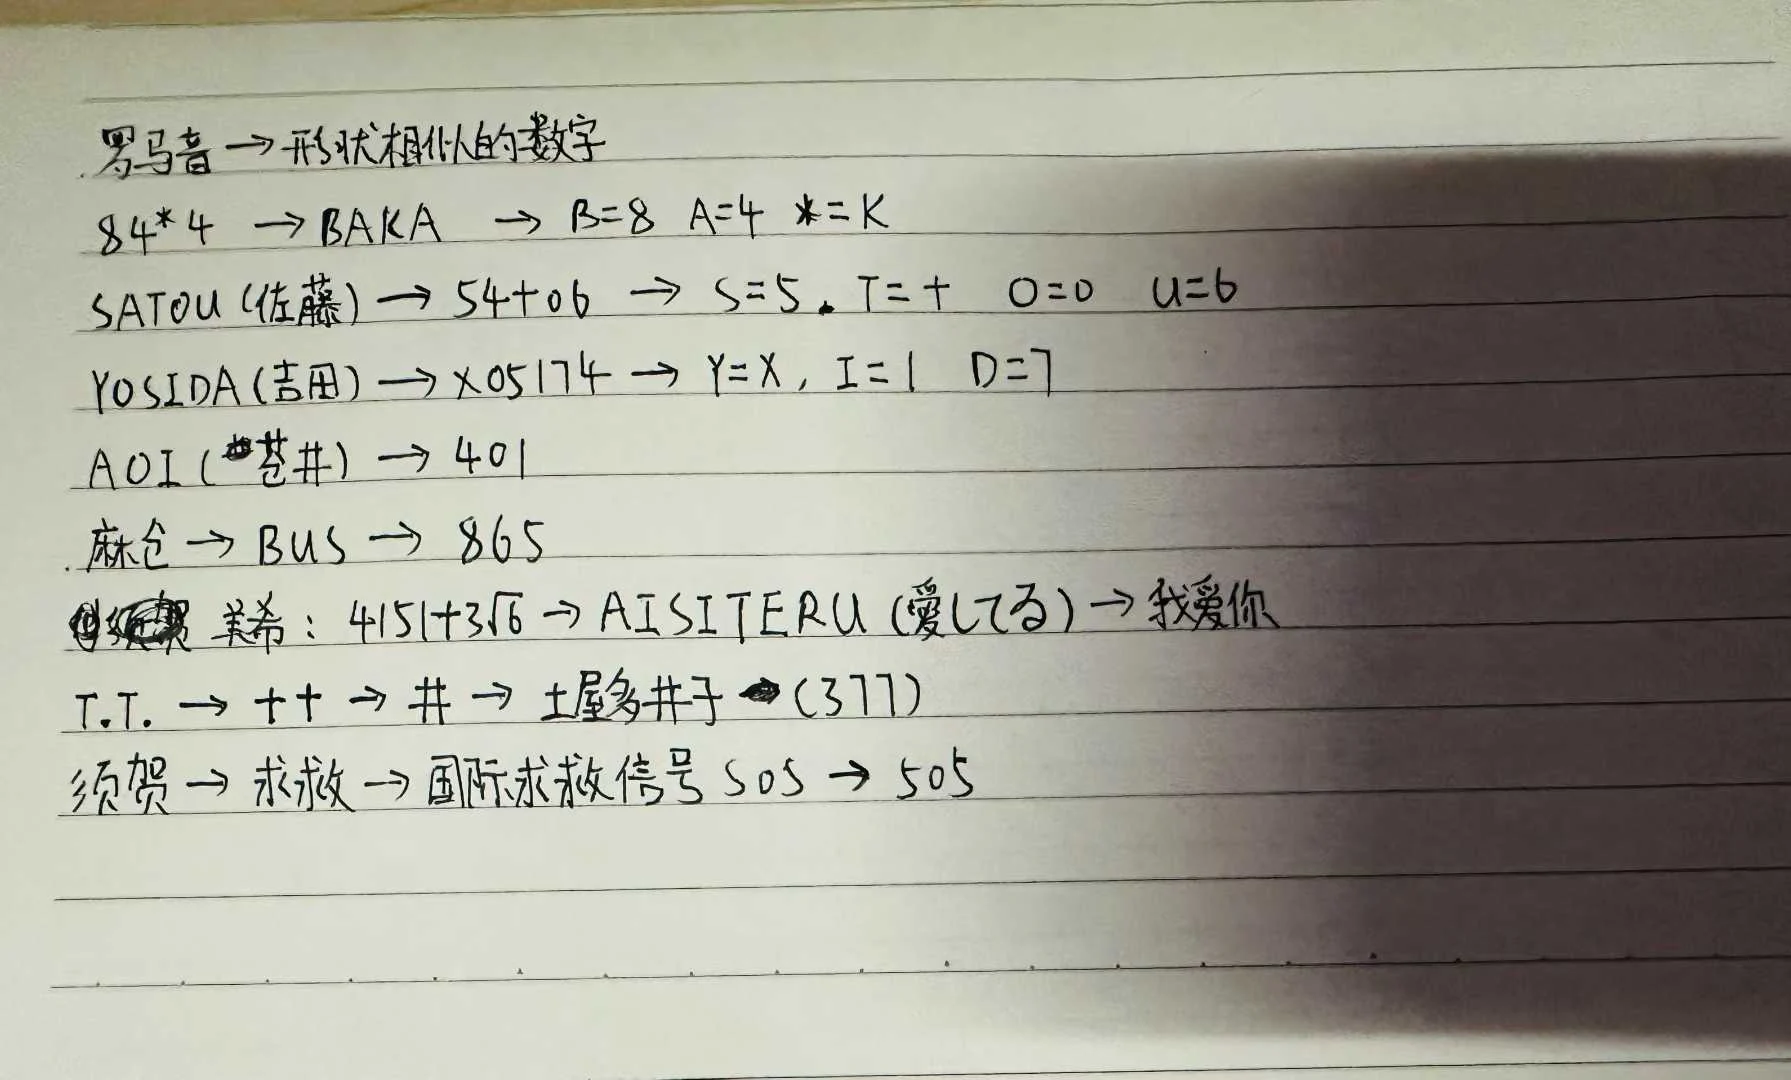 罗马音→形状相似的数字
84*4 →BAKA → B=8 A=4 *=K
SATOU(佐藤)→ 54+06 → S=5. T=+ O=0 U=6
YOSIDA(吉田)→ X05174 → Y=X, I=1 D=7
AOI(苍井)→ 401
麻仓→ BUS → 865
美希: 4151+3√6 → AISITERU (愛してる)→我爱你
T.T. → ++ → 井 → 土屋多井子 (377)
须贺→ 求救→国际求救信号 SOS → 505